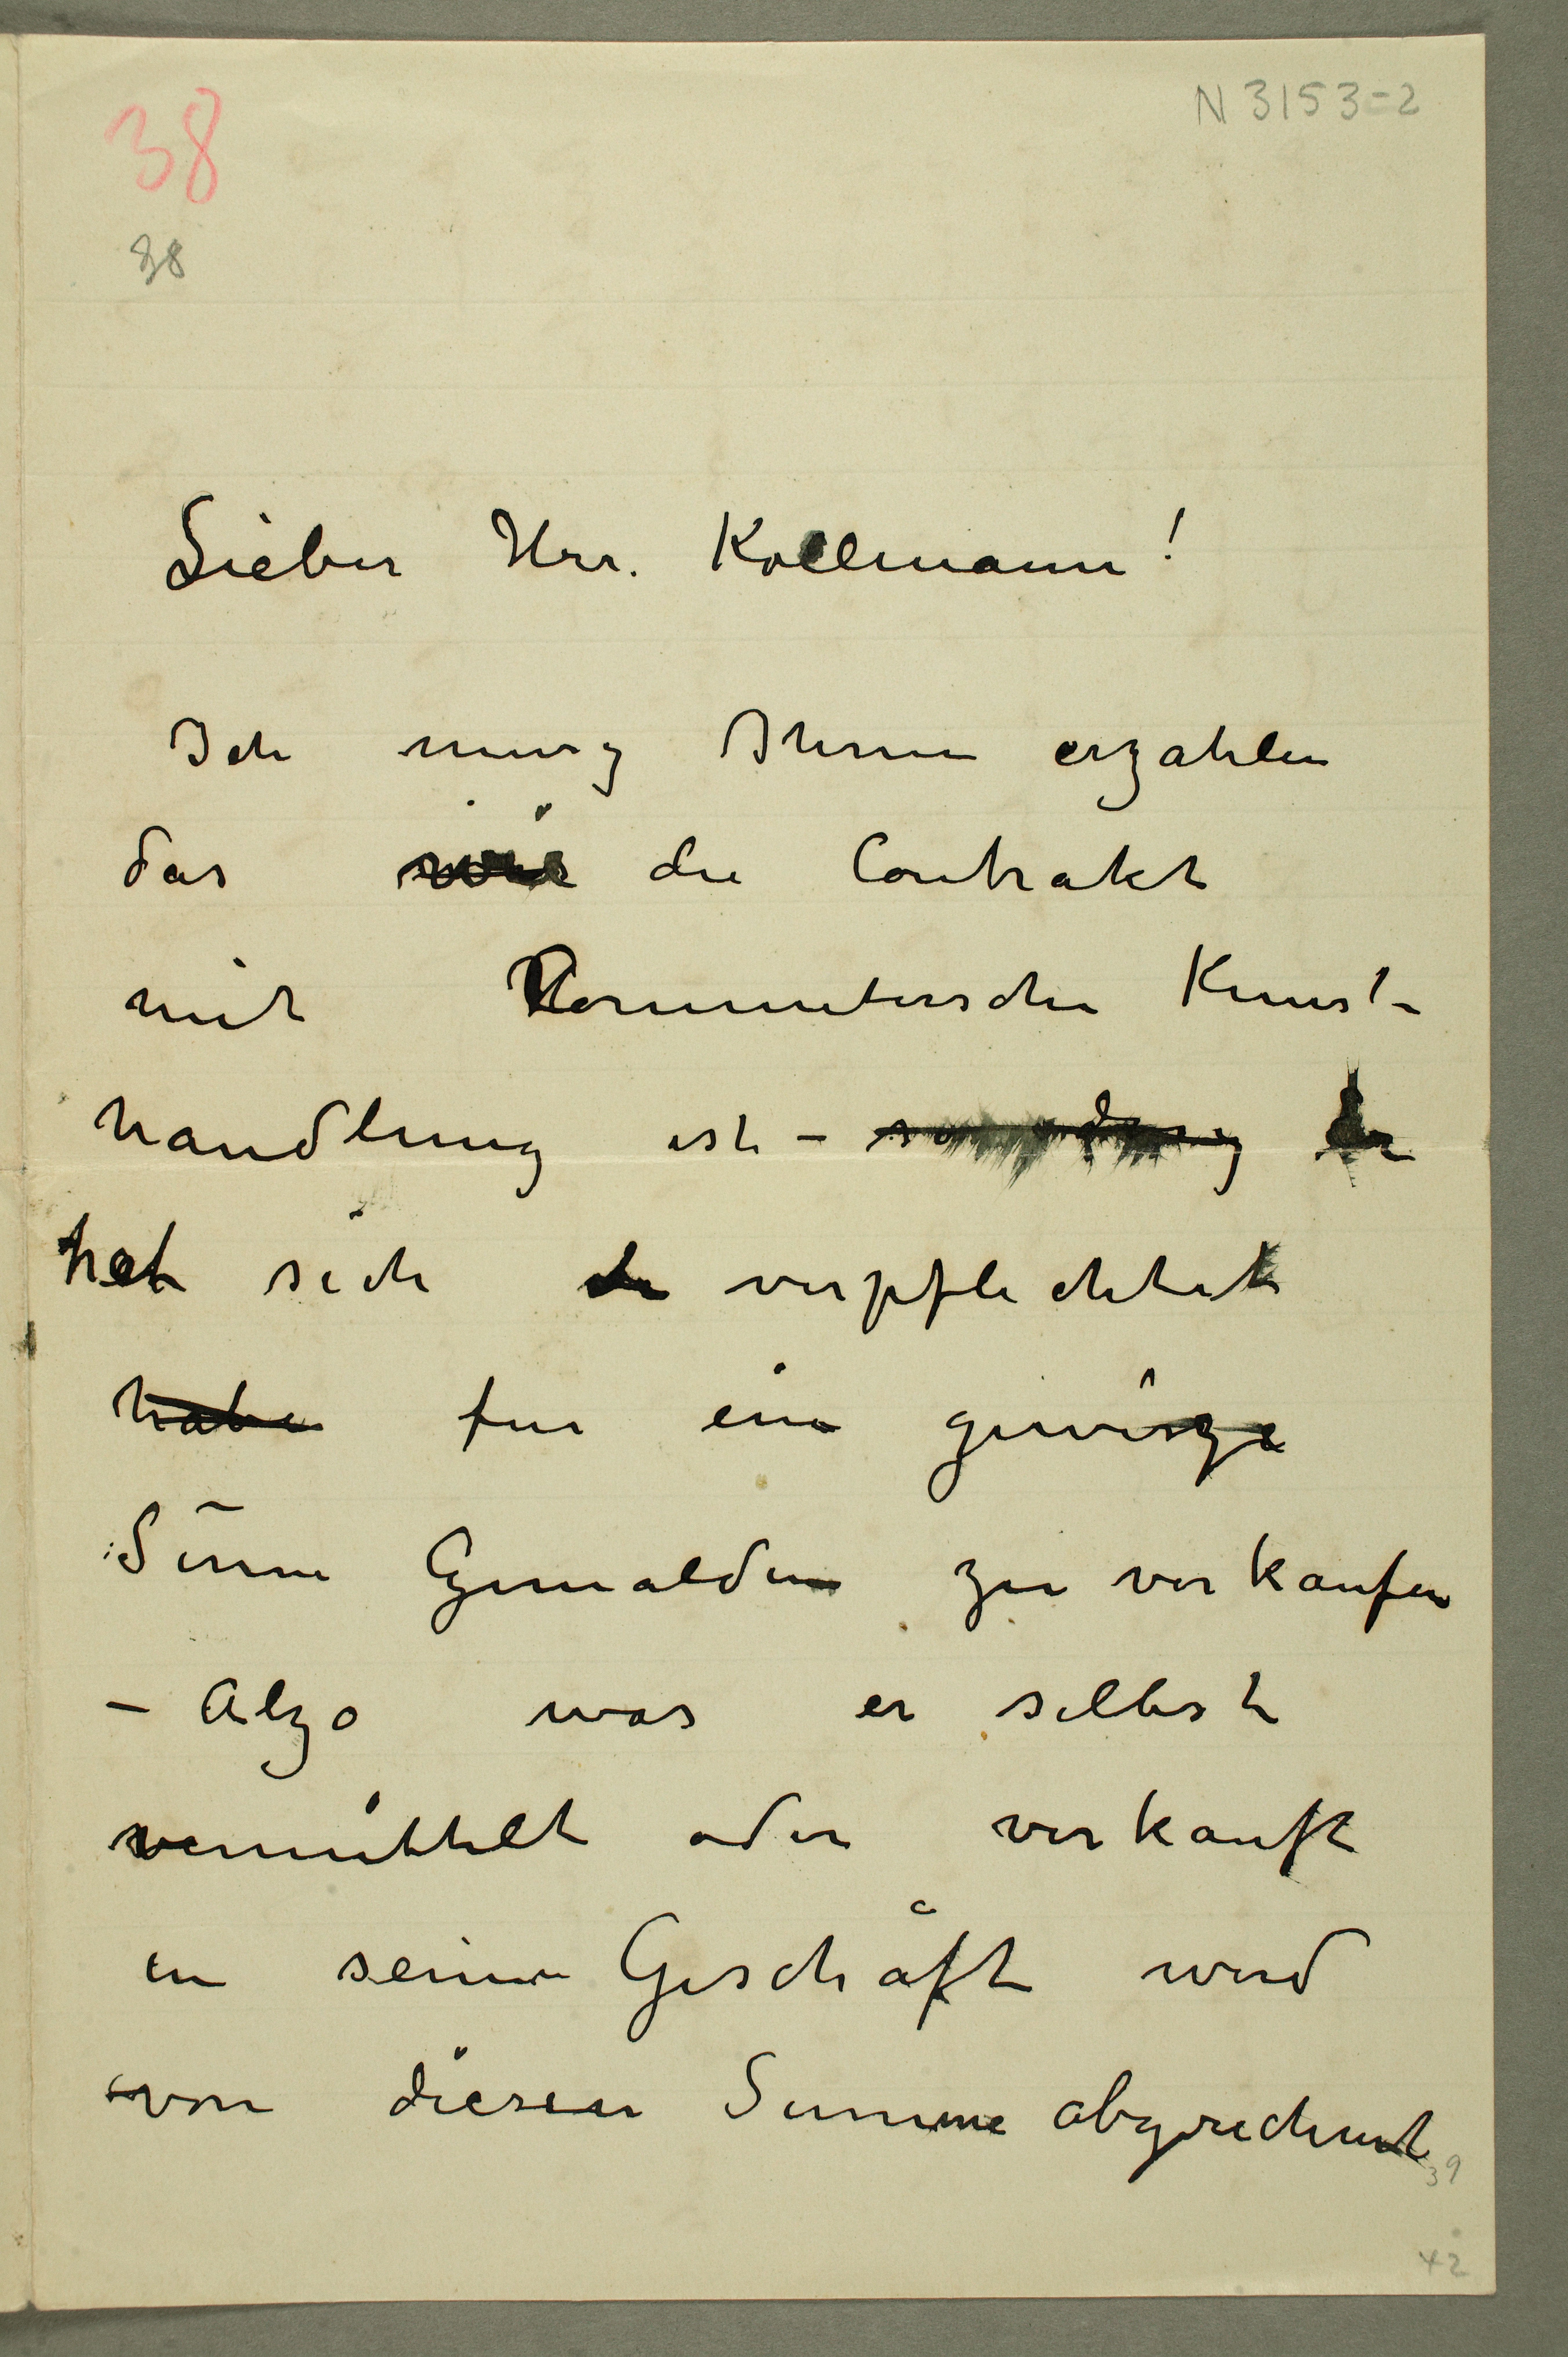 38
N 3153=2
38
Lieber Herr. Kollmann!
Ich musz Ihnen erzahlen
das wie die Contrakt
mit Kommeterschen Kunst-
handlung ist – Er
hat sich verpflichtet
habe fur eine gewisze
Sum̅e Gemalden zu verkaufen
– Alzo was er selbst
vermittelt oder verkauft
in seinem Geschäft wird
von diesen Summe abgerechnet
39
42